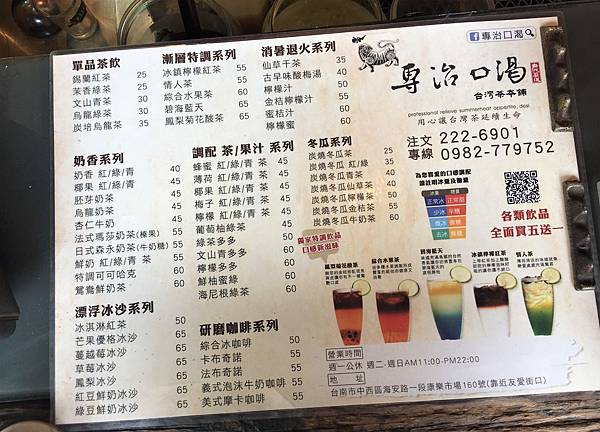 單品茶飲
錫蘭紅茶 25
茉香綠茶 25
文山青茶 30
烏龍綠茶 30
炭培烏龍茶 35
漸層特調系列
冰鎮檸檬紅茶 55
情人茶 55
綜合水果茶 60
碧海藍天 55
鳳梨菊花酸茶 65
消暑退火系列
仙草干茶 35
古早味酸梅湯 40
檸檬汁
金桔檸檬汁
金桔蜜 55
檸檬蜜 60
專治口渴
專治口渴
台灣茶本舖
professional relieve summerheat appetite, desi
用心讓台灣茶延續生命
注文 222-6901
專線 0982-779752
奶香系列
奶香 紅/綠/青 40
椰果 紅/綠/青
胚芽奶茶
烏龍奶茶
杏仁牛奶
法式瑪莎奶茶(榛果)
日式森永奶茶(牛奶糖)
鮮奶 紅/綠/青 茶
特調可可哈克
鴛鴦鮮奶茶
調配 茶/果汁 系列
蜂蜜 紅/綠/青 茶 45
薄荷 紅/綠/青 茶 45
椰果 紅/綠/青 茶 45
梅子 紅/綠/青 茶
檸檬 紅/綠/青 茶
葡萄柚綠茶 50
綠茶多多 50
文山青多多
檸檬多多
鮮柚蜜綠
海尼根綠茶
冬瓜系列
炭燒冬瓜茶
炭燒冬瓜 紅/綠
炭燒冬瓜青茶
炭燒冬瓜仙草茶
炭燒冬瓜檸檬茶
炭燒冬瓜金桔茶
炭燒冬瓜牛奶茶
為您喜愛的口感調配
請註明冰量及糖量
冰量 糖量
正常冰 正常甜
少冰 半糖
微冰 微糖
去冰 無糖
各類飲品
全面買五送一
獨家特調飲品
口感新滋味
鳳梨菊花酸茶
綜合水果茶
碧海藍天
冰鎮檸檬紅茶
情人茶
漂浮冰沙系列
冰淇淋紅茶 50
芒果優格冰沙
蔓越莓冰沙
草莓冰沙
鳳梨冰沙
紅豆鮮奶冰沙 65
綠豆鮮奶冰沙 65
研磨咖啡系列
綜合冰咖啡 50
卡布奇諾 55
法布奇諾 55
義式泡沫牛奶咖啡 55
美式摩卡咖啡 55
營業時間
週一公休 週二-週日AM11:00-PM22:00
地 址
台南市中西區海安路一段康樂市場160號(靠近友愛街口)